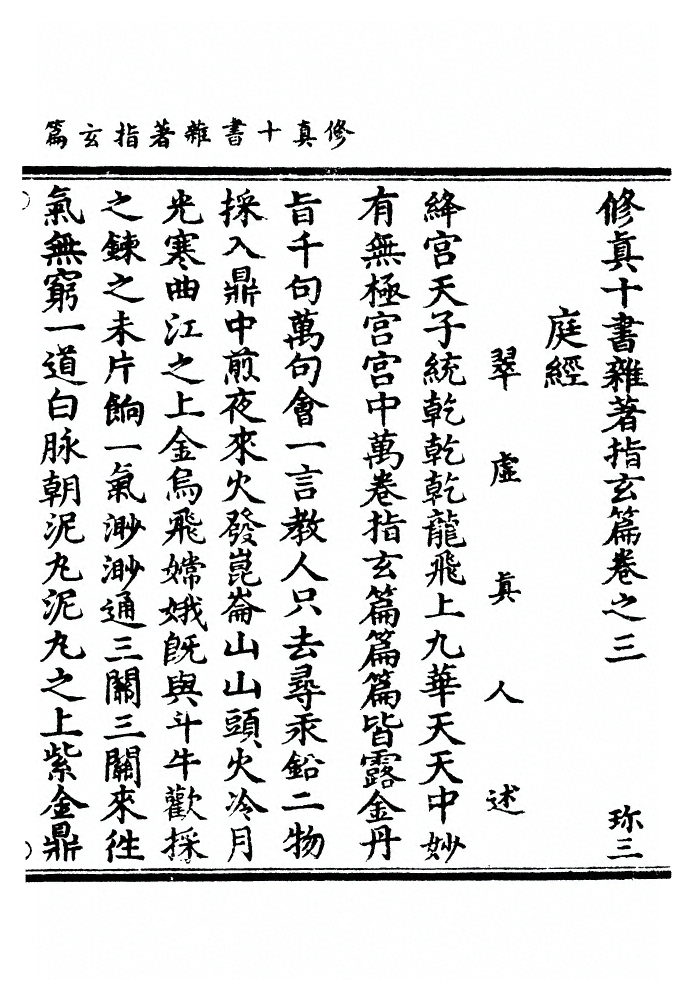 修真十書雜著指玄篇
修真十書雜著指玄篇卷之三 珎三
庭經
翠虛真人述
絳宮天子統乾乾乾龍飛上九華天天中妙
有無極宮宮中萬卷指玄篇篇篇皆露金丹
旨千句萬句會一言教人只去尋汞鉛二物
採入鼎中煎夜來火發崑崙山山頭火冷月
光寒曲江之上金烏飛嫦娥旣與斗牛歡採
之鍊之未片餉一氣渺渺通三關三關來徃
氣無窮一道白脉朝泥丸泥丸之上紫金鼎